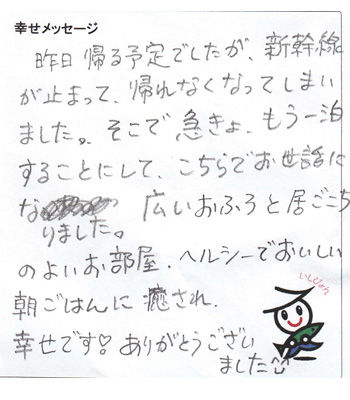 幸せメッセージ
昨日帰る予定でしたが、新幹線
が止まって、帰れなくなってしまい
ました。そこで急きょ、もう一泊
することにして、こちらでお世話に
な 広いおふろと居ごこち
りました。
のよいお部屋、ヘルシーでおいしい
朝ごはんに癒され、
幸せです♡ありがとうござい
ました